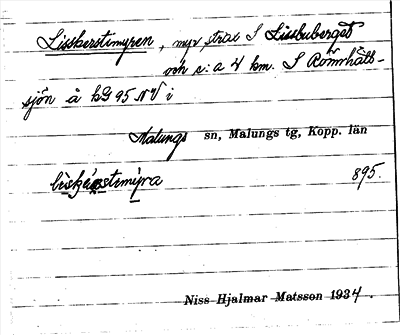 Lisskerstimyren, myr, strax S Lissbuberget
och c:a 4 km. S Römhålts-
sjön å kG 95 NV i
Malungs sn, Malungs tg, Kopp. län
895.
Niss Hjalmar Matsson 1934.